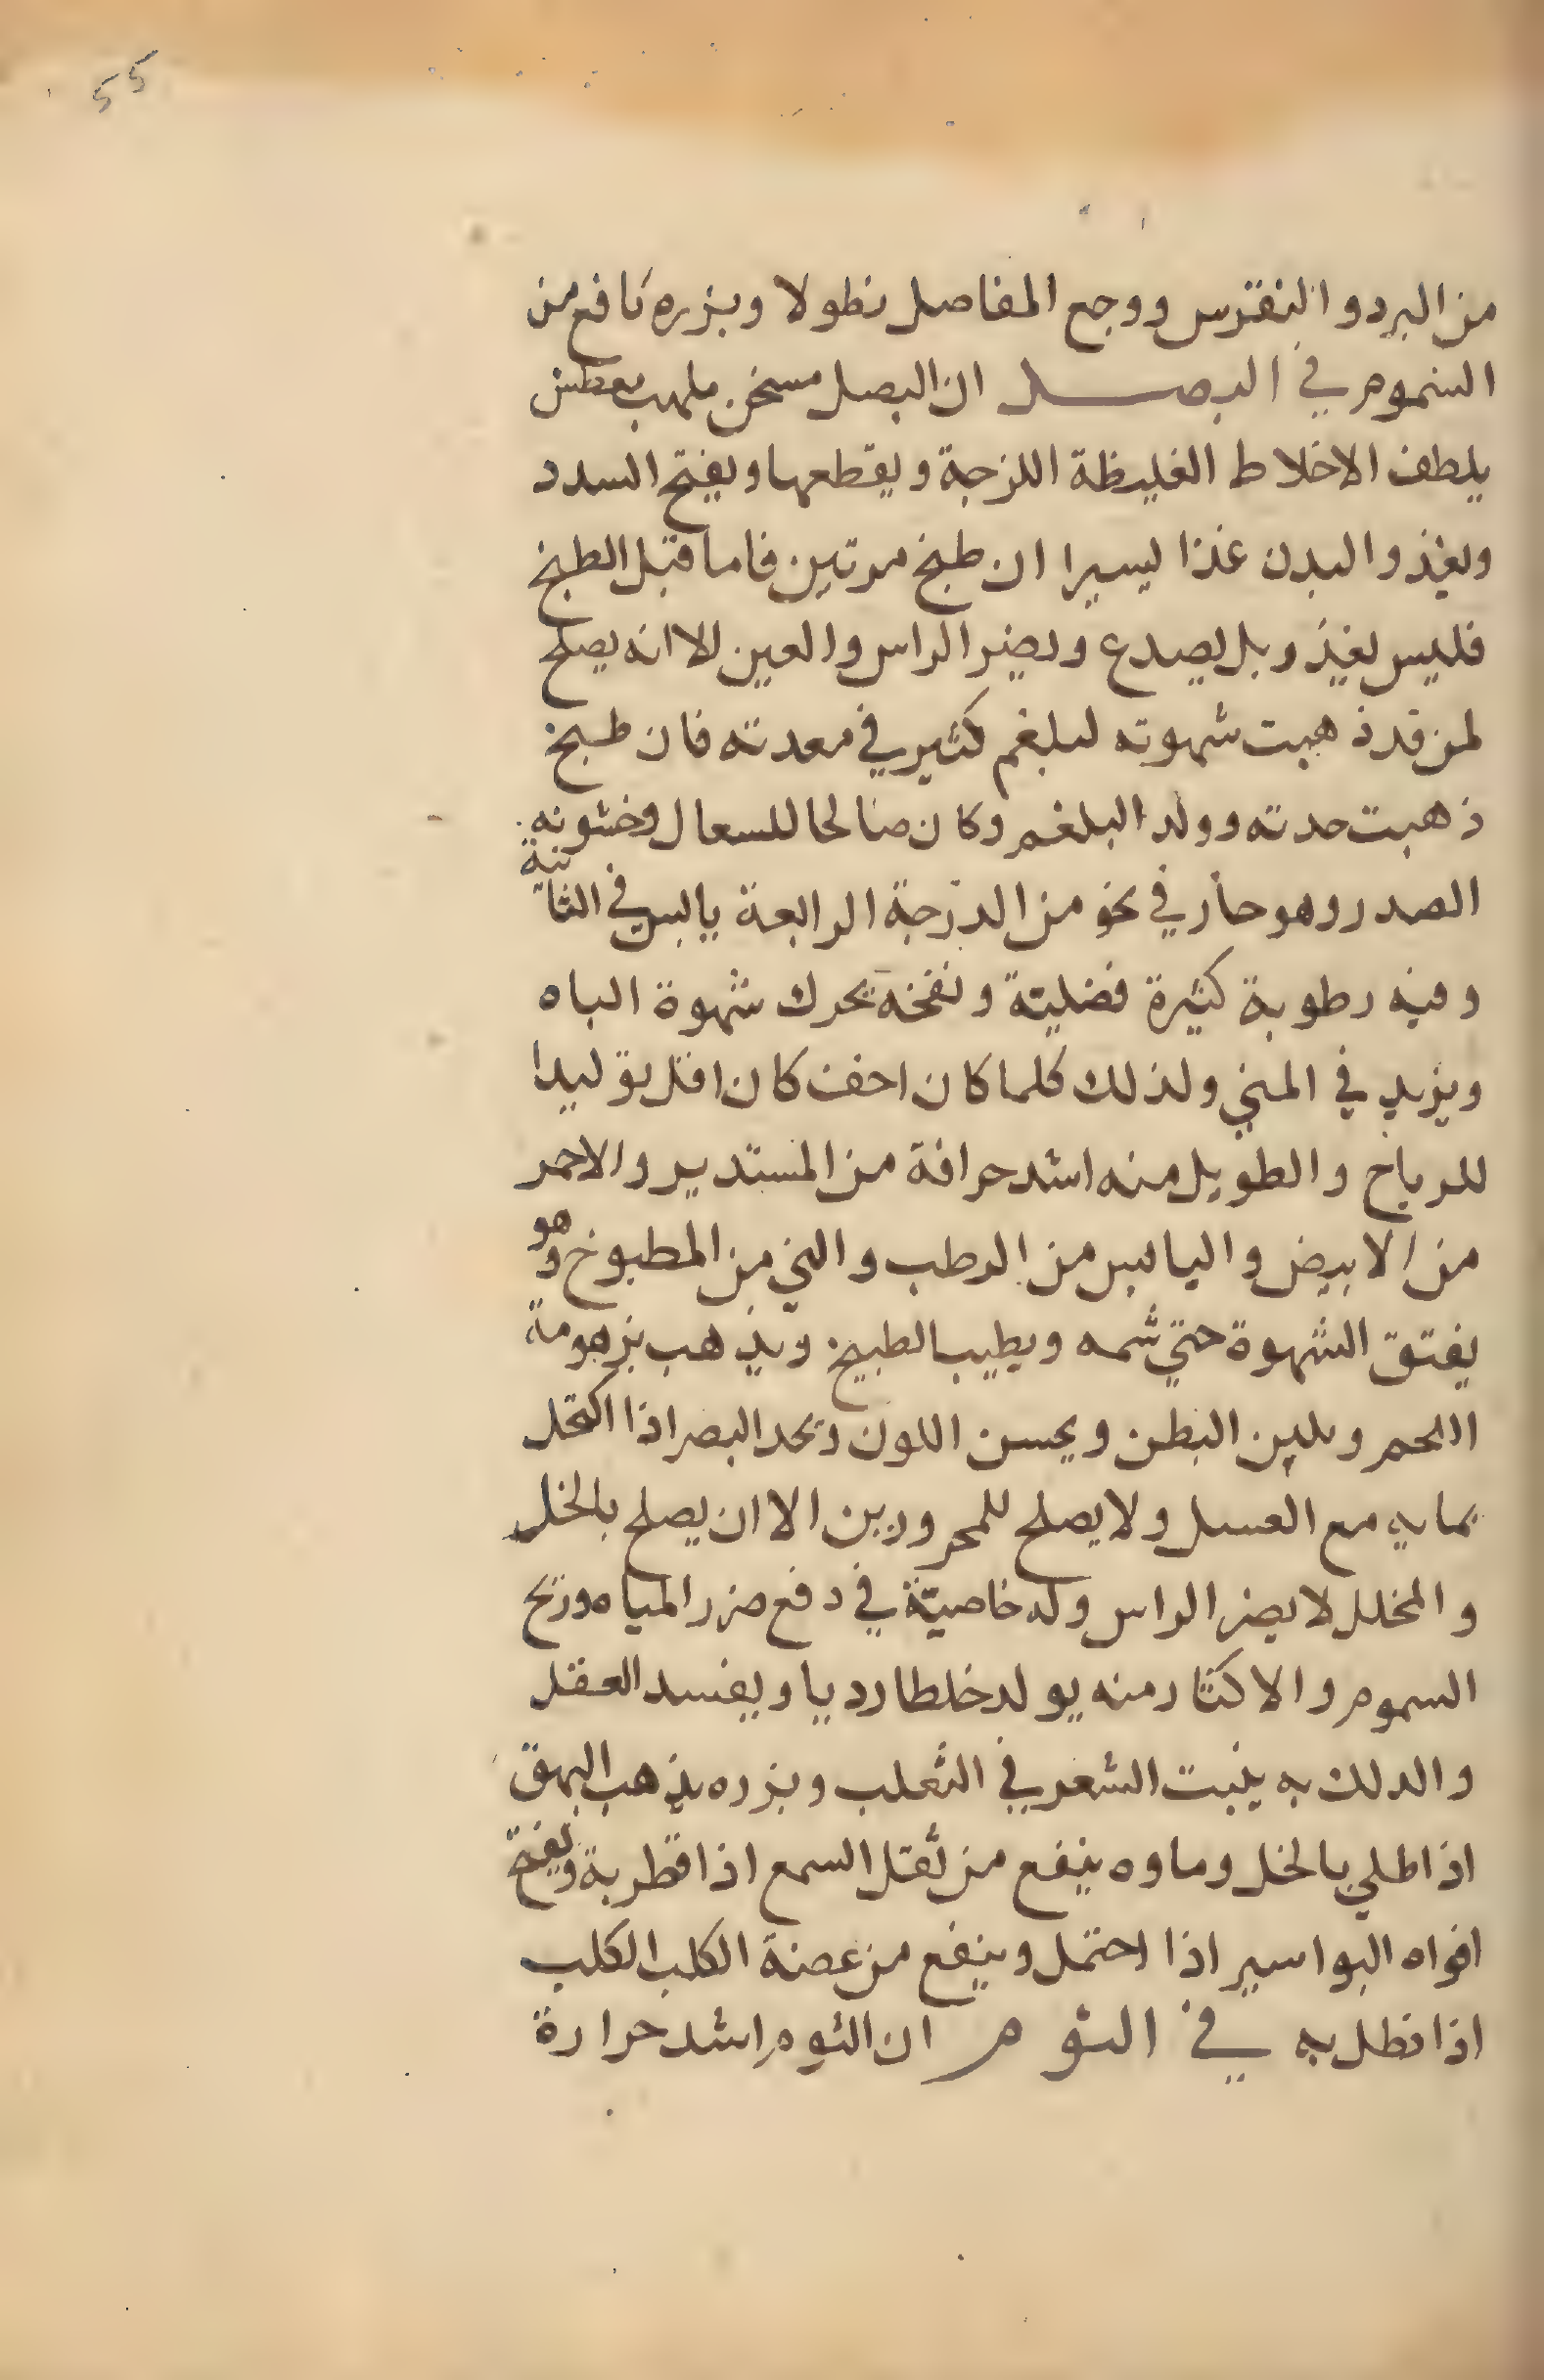 55
من البرد والنقرس ووجع المفاصل نطولا وبزره نافع من
السموم في البصل ان البصل مسخن ملهب معطش
يلطف الاخلاط الغليظة اللزجة ويقطعها ويفتح السدد
ويغذو البدن غذا يسيرا ان طبخ مرتين فاما قبل الطبخ
فليس يغذو بل يصدع ويضر الراس والعين الا انه يصلح
لمن قد ذهبت شهوته لبلغم كثير في معدته فان طبخ
ذهبت حدته وولد البلغم وكان صالحا للسعال وخشونه
الصدر وهو حار في نحو من الدرجة الرابعة يابس في الثانية
وفيه رطوبة كثيرة فضلية ونفخه يحرك شهوة الباه
ويزيد في المني ولذلك كلما كان اخف كان اقل توليدا
للرياح والطويل منه اشد حرافة من المستدير والاحمر
من الابيض واليابس من الرطب والني من المطبوخ وهو
يفتق الشهوة حتي شمه ويطيب الطبيخ ويذهب بزهومة
اللحم ويلين البطن ويحسن اللون ويحد البصر اذا اكتحل
بمايه مع العسل ولا يصلح للمحرورين الا ان يصلح بالخل
والمخلل لا يضر الراس وله خاصية في دفع ضرر المياه وريح
السموم والاكثار منه يولد خلطا رديا ويفسد العقل
والدلك به ينبت الشعر في الثعلب وبزره يذهب البهق
اذا طلي بالخل وماوه ينفع من ثقل السمع اذا قطر به ويفتح
افواه البواسير اذا احتمل وينفع من عضة الكلب الكلب
اذا نطل به في الثوم ان الثوم اشد حرارة